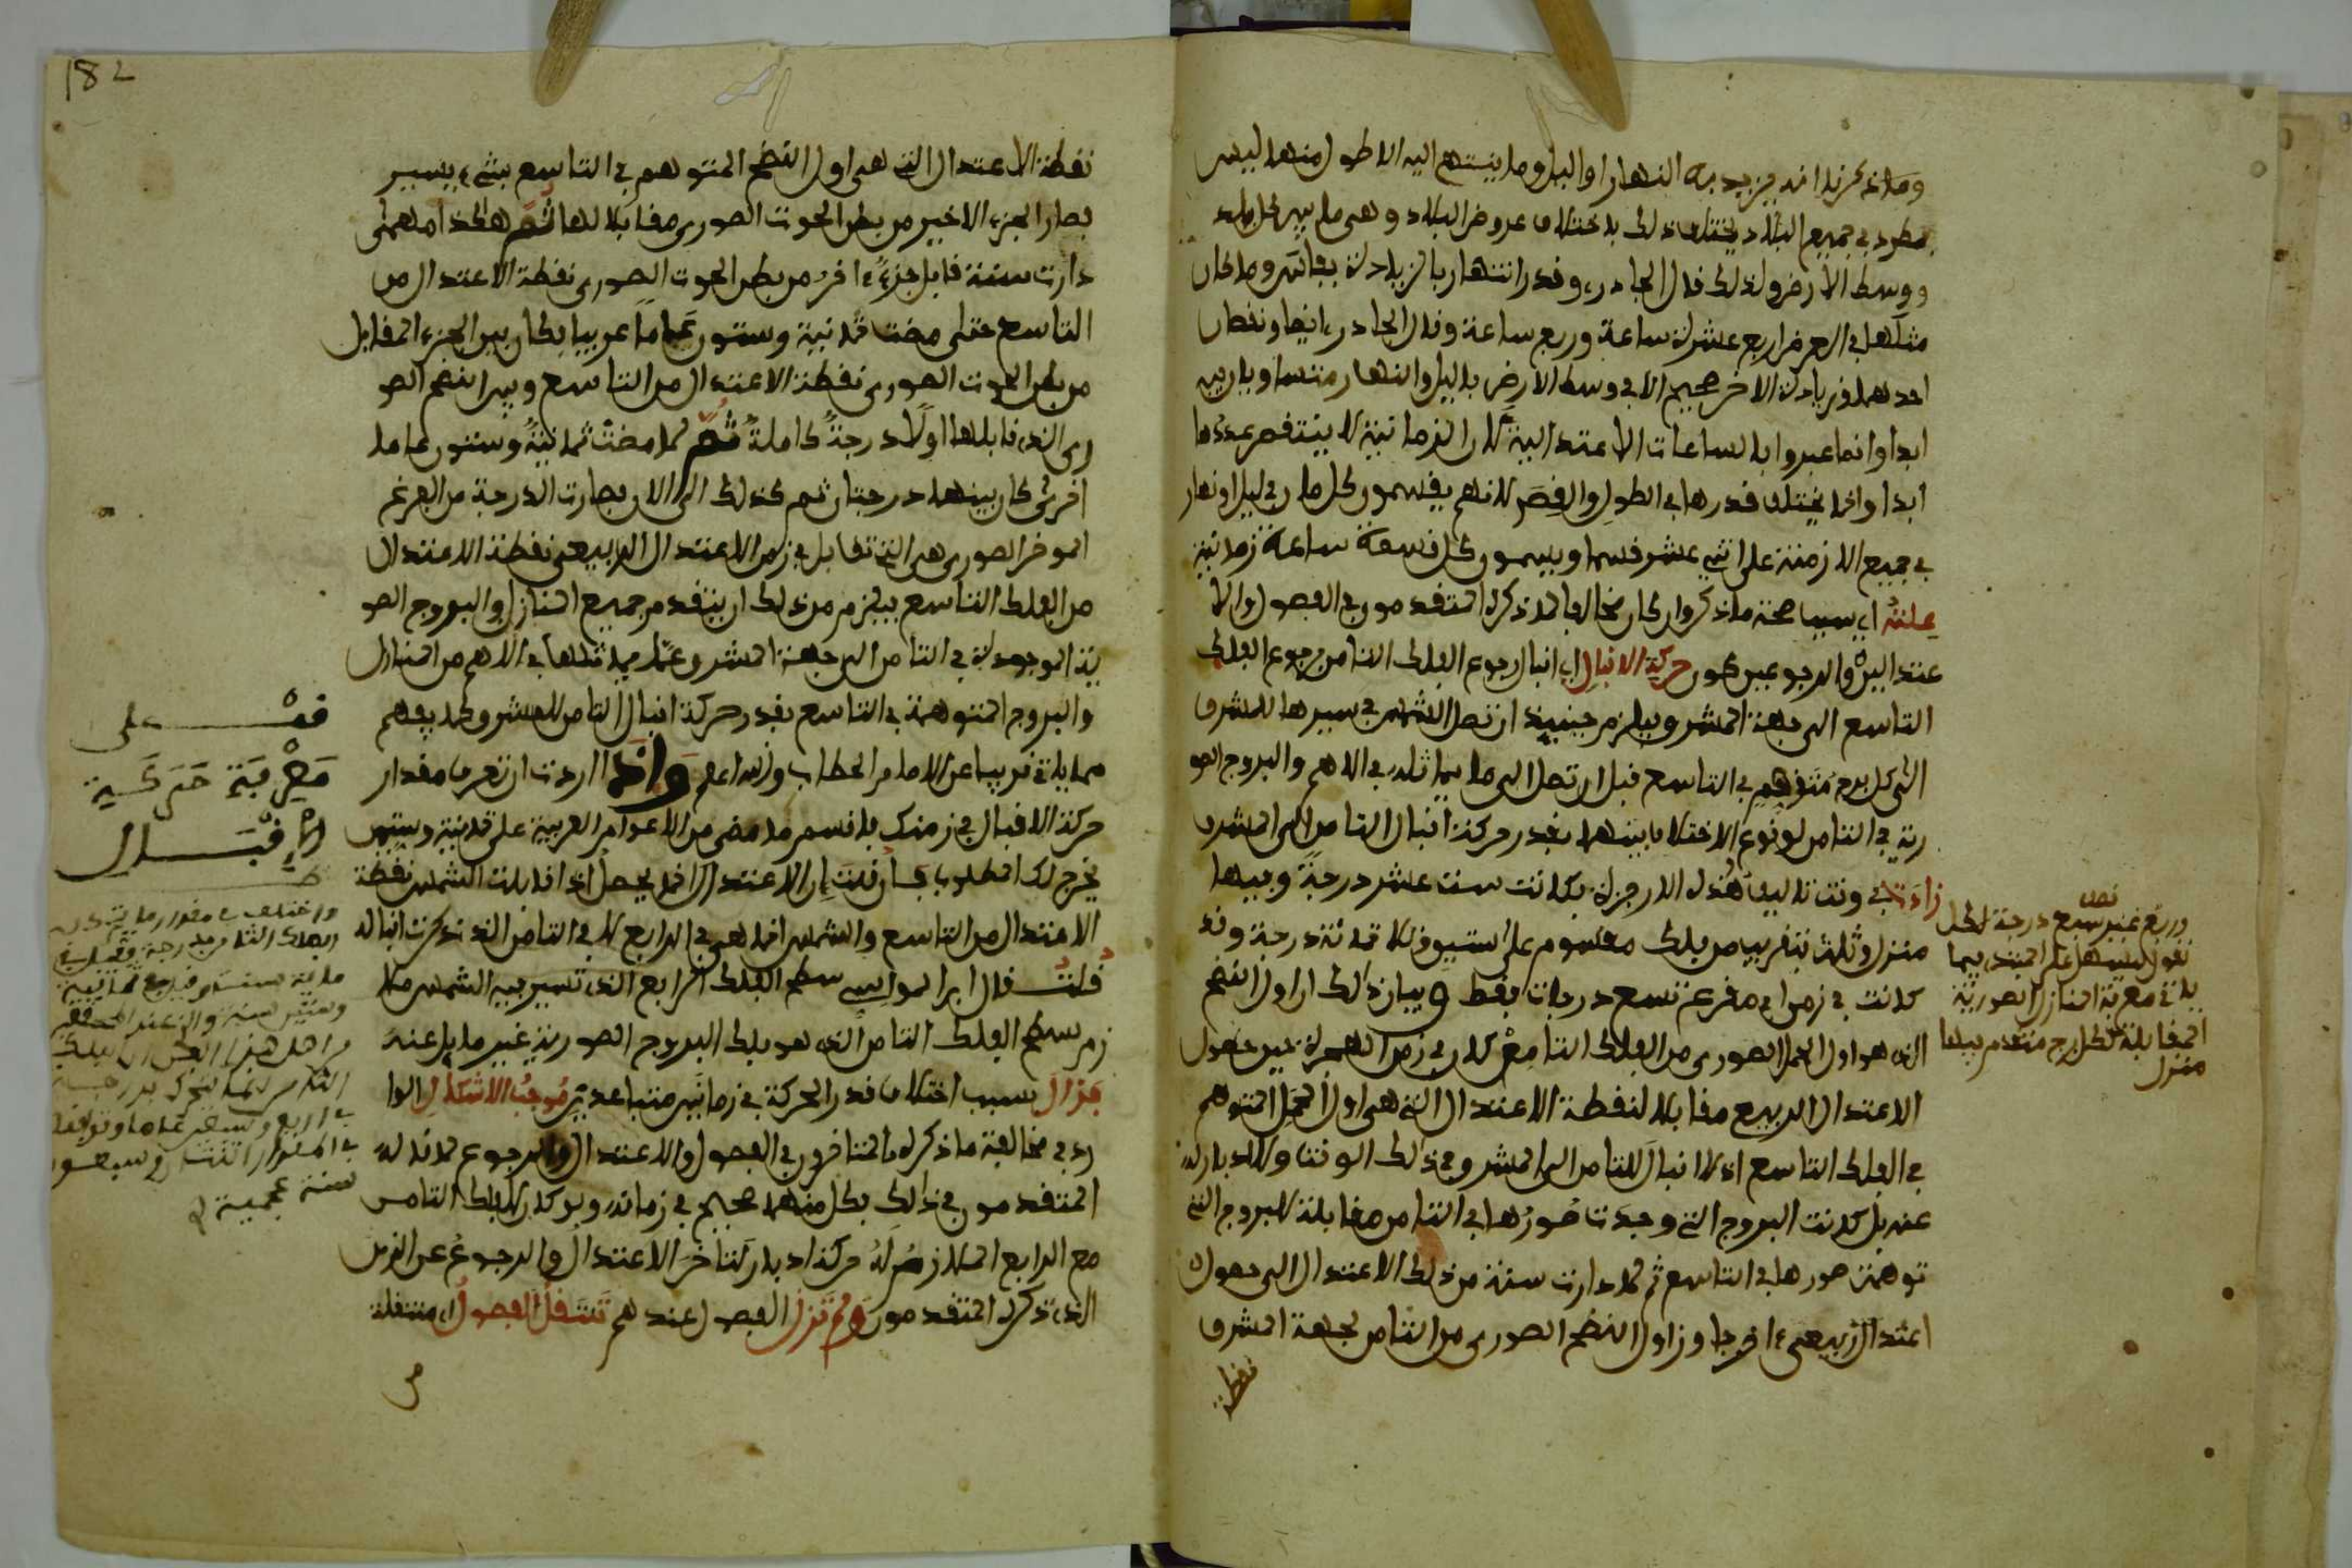 وما ذكرنا انه يزيد به النهار او اليل وما ينتهى اليه الاطول منهما ليس
بمطرد في جميع البلاد يختلف ذلك باختلاف عروض البلاد وهى ما بين كل بلد
ووسط الارض ولذلك قال الجادرى وقدر انتهار بالزيادة بفاس وما كان
مثلها في العرض اربع عشرة ساعة وربع ساعة وقال الجادرى ايضا ونقصان
احدهما وزيادة الاخر صحيح الا في وسط الارض فاليل والنهار متساويان فيه
ابدا وانما عبروا بالساعات الاعتدالية لان الزمانية لا ينتقص عددها
ابدا وانما يختلف قدرها في الطول والقصر لانهم يقسمون كل ما في ليل او نهار
في جميع الازمنة على اثنى عشر قسما ويسمون كل قسمة ساعة زمانية
علته اي سبب صحة ما ذكروا وان كان مخالفا لما ذكره المتقدمون في الفصول والا
عتدالين والرجوعين كون حركة الاقبال اي اقبال رجوع الفلك الثامن رجوع الفلك
التاسع الى جهة المشرق ويلزم حينئذ ان تصل الشمس في سيرها للمشرق
الى كل برج متوهم في التاسع قبل ان تصل الى ما يماثله في الاسم والبروج الصو
رية في الثامن لوقوع الاختلاف بينهما بقدر حركة اقبال الثامن الى المشرق
زادت في وقت تاليف هذه الارجوزة فكانت ست عشر درجة وفيها
منزل وثلث بتقريب من فلك مقسوم على ستين وثلاثمائة درجة وقد
كانت في زمن ابي مقرع تسع درجات فقط وبيان ذلك ان اول النطح
الذى هو اول الحمل الصورى من الفلك الثامن كان في زمن الهجرة حين حلول
الاعتدال الربيعى مقابلا لنقطة الاعتدال التى هى اول الحمل المتوهم
في الفلك التاسع اذ لا اقبال للثامن الى المشرق في ذلك الوقت ولا ادبار له
عنه بل كانت البروج التى وجدت صورها في الثامن مقابلة للبروج التى
توهمت صورها في التاسع ثم لما دارت سنة من ذلك الاعتدال الى حلول
اعتدال ربيعى اخر جاوز اول النطح الصورى من الثامن لجهة المشرق
نقطة
وربع غير تسع درجة لكل
نقول ليسهل على المبتدى فيما
ياتى معرفة المنازل الصورية
المقابلة لكل برج متقدم فيها
منزل
182
نقطة الاعتدال التى هى اول النطح المتوهم في التاسع بشىء يسير
فصار الجزء الاخير من بطن الحوت الصورى مقابلا لها ثم هكذا مهمى
دارت سنة قابل جزء اخر من بطن الحوت الصورى نقطة الاعتدال من
التاسع حتى مضت ثمانية وستون عاما عربيا فكان بين الجزء المقابل
من بطن الحوت الصورى نقطة الاعتدال من التاسع وبين النطح الصو
رى الذى قابلها اولا درجة كاملة ثم لما مضت ثمانية وستون عاما
اخرى كان بينهما درجتان ثم كذلك الى الان فصارت الدرجة من الفرغ
الموخر الصورى هى التى تقابل في زمن الاعتدال الربيعى نقطة الاعتدال
من الفلك التاسع فيلزم من ذلك ان يتقدم جميع المنازل والبروج الصو
رية الموجودة في الثامن الى جهة المشرق عما يماثلها في الاسم من المنازل
والبروج المتوهمة في التاسع بقدر حركة اقبال الثامن للمشرق كما يفهم
مما ياتى قريبا عن الامام الحطاب والله اعلم واذا اردت ان تعرف مقدار
حركة الاقبال في زمنك فاقسم ما مضى من الاعوام العربية على ثمانية وستين
يخرج لك المطلوب فان قلت ان الاعتدال انما يحصل اذا قابلت الشمس نقطة
الاعتدال من التاسع والشمس انما هى في الرابع لا في الثامن الذى ذكرت اقباله
قلت قال ابن المواسى سطح الفلك الرابع الذى تسير فيه الشمس ملا
زم سطح الفلك الثامن الذى هو فلك البروج الصورية غير مايل عنه
فزال بسبب اختلاف قدر الحركة في زمانين متباعدين موجب الاشكال الوا
رد في مخالفة ما ذكره المتاخرون في الفصول والاعتدال والرجوع لما قاله
المتقدمون في ذلك فكل منهما صحيح في زمانه ولو كان للفلك الثامن
مع الرابع الملازم له حركة ادبار لتاخر الاعتدال والرجوع عن الزمن
الذى ذكره المتقدمون ولم تزل الفصول عندهم تنتقل الفصول اى منتقلة
قف على
معرفة حركة
الاقبال
واختلف في مقدار ما يتحرك
الفلك الثامن درجة فقيل في
ماية سنة وقيل في ثمانية
وستين سنة
سنة عجمية